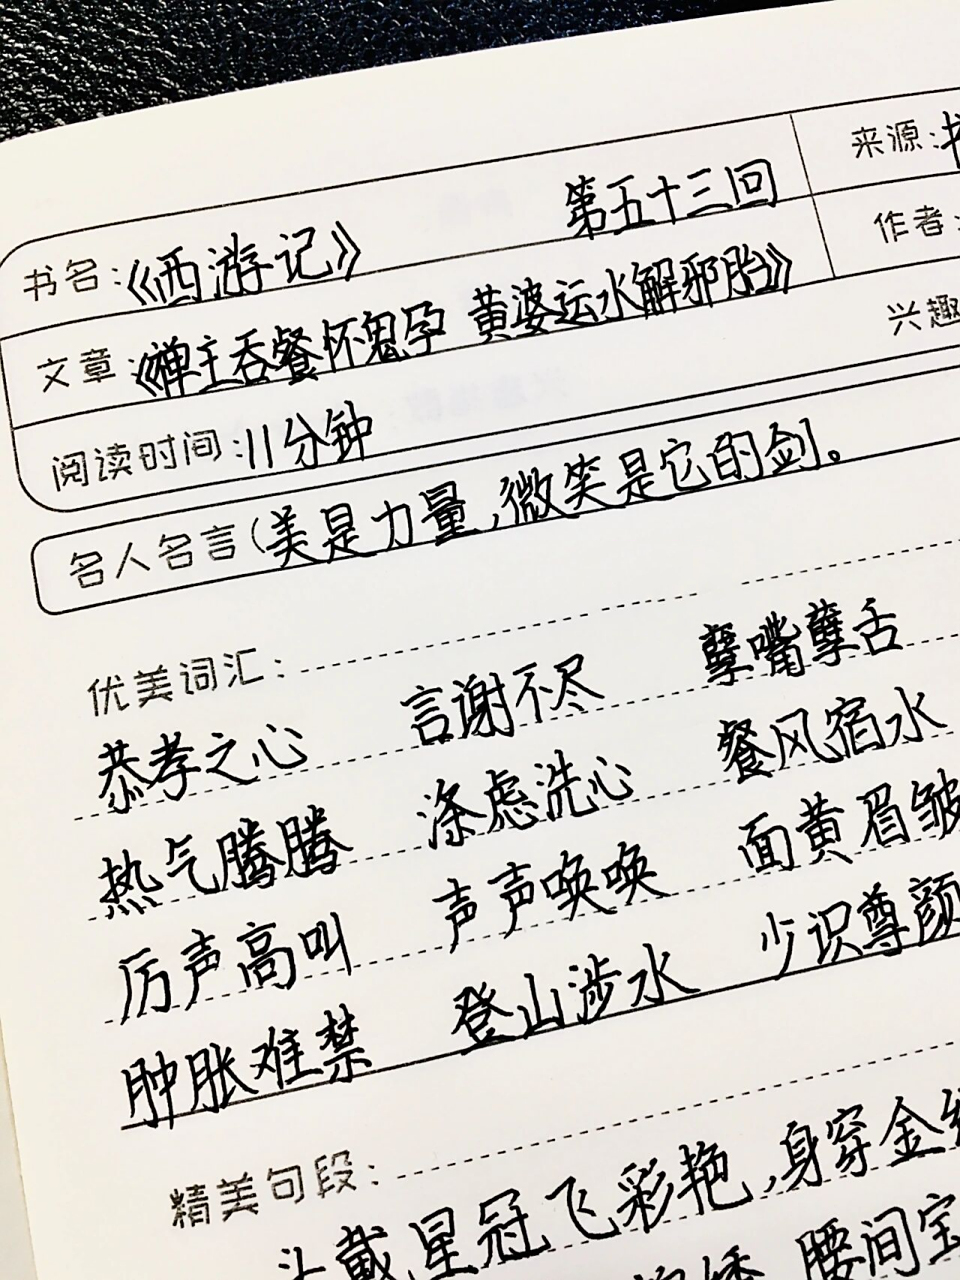 书名:《西游记》 第五十三回 来源:
文章:《禅主吞餐怀鬼孕 黄婆运水解邪胎》 作者:
阅读时间:11分钟 兴趣
名人名言(美是力量,微笑是它的剑。
优美词汇:
恭孝之心 言谢不尽 孽嘴孽舌
热气腾腾 涤虑洗心 餐风宿水
厉声高叫 声声唤唤 面黄眉皱
肿胀难禁 登山涉水 少识尊颜
精美句段:
头戴星冠飞彩艳,身穿金
腰间宝